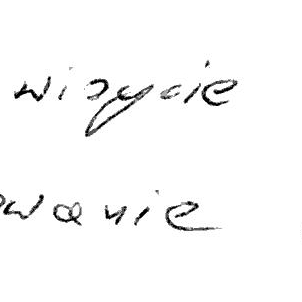 wizycie
owanie